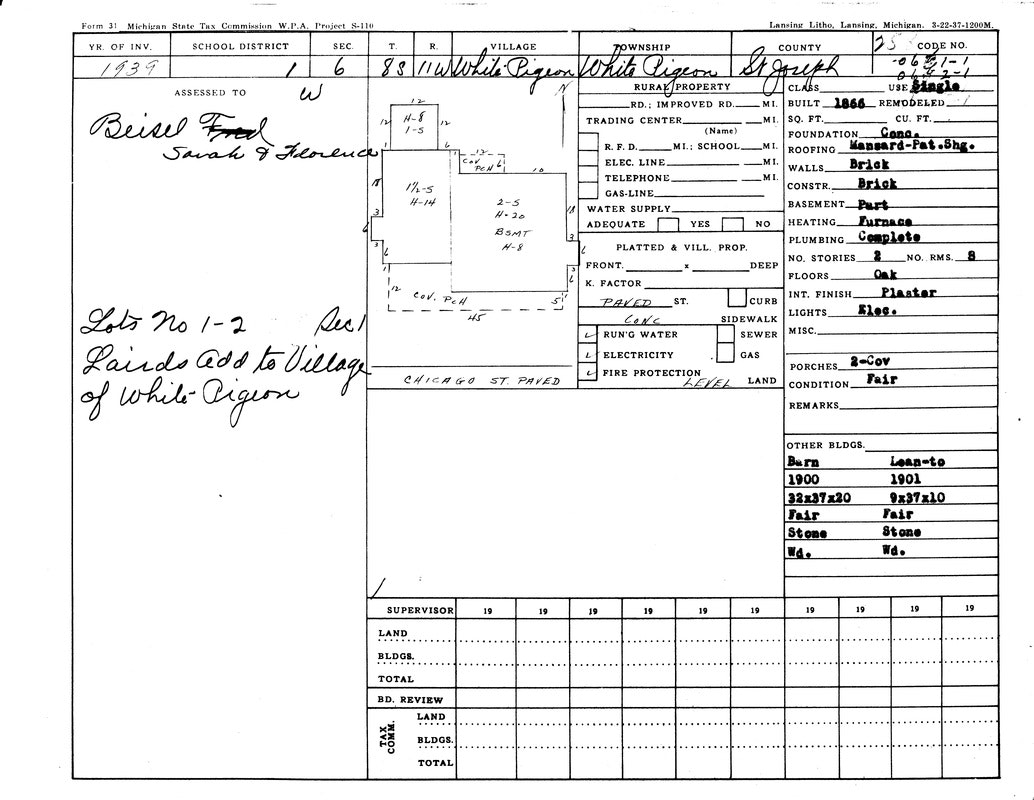 Form 31 Michigan State Tax Commission W.P.A. Project S-110
Lansing Litho, Lansing, Michigan. 3-22-37-1200M.
YR. OF INV. SCHOOL DISTRICT SEC. T. R. VILLAGE TOWNSHIP COUNTY CODE NO.
1939 1 6 8S 11W White Pigeon White Pigeon St Joseph
ASSESSED TO W
Beisel Fred
Sarah & Florence
Lots No 1-2 Sec 1
Lairds Add to Village
of White Pigeon
N
12
12 H-8 12
1-5
1 6
1 12
COV. PCH 6
10
18 1½-5
H-14
2-5
H-20
BSMT
H-8
18
3 3
6 6
3 3
6 6
1 1
12 COV. PCH 5
45
CHICAGO ST. PAVED
RURAL PROPERTY
RD.; IMPROVED RD. MI.
TRADING CENTER MI.
(Name)
R. F. D. MI.; SCHOOL MI.
ELEC. LINE MI.
TELEPHONE MI.
GAS-LINE
WATER SUPPLY
ADEQUATE YES NO
PLATTED & VILL. PROP.
FRONT. x DEEP
K. FACTOR
PAVED ST. CURB
CONC SIDEWALK
RUN'G WATER SEWER
ELECTRICITY GAS
FIRE PROTECTION
LEVEL LAND
CLASS USE Single
BUILT 1866 REMODELED
SQ. FT. CU. FT.
FOUNDATION Conc.
ROOFING Mansard-Pat.Shg.
WALLS Brick
CONSTR. Brick
BASEMENT Part
HEATING Furnace
PLUMBING Complete
NO. STORIES 2 NO. RMS. 8
FLOORS Oak
INT. FINISH Plaster
LIGHTS Elec.
MISC.
PORCHES 2-Cov
CONDITION Fair
REMARKS
OTHER BLDGS.
Barn Lean-to
1900 1901
32x37x20 9x37x10
Fair Fair
Stone Stone
Wd. Wd.
SUPERVISOR 19 19 19 19 19 19 19 19 19 19
LAND
BLDGS.
TOTAL
BD. REVIEW
TAX COMM.
LAND
BLDGS.
TOTAL